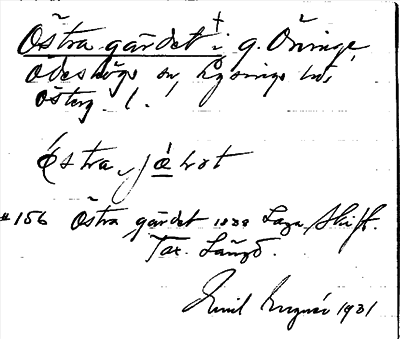 Östra gärdet i g. Öninge
Ödeshögs sn, Lysings hd,
Österg. l.
östra jæḷrət
#156 Östra gärdet 1839 Laga Skift.
Tax. Längd.
Emil 1931